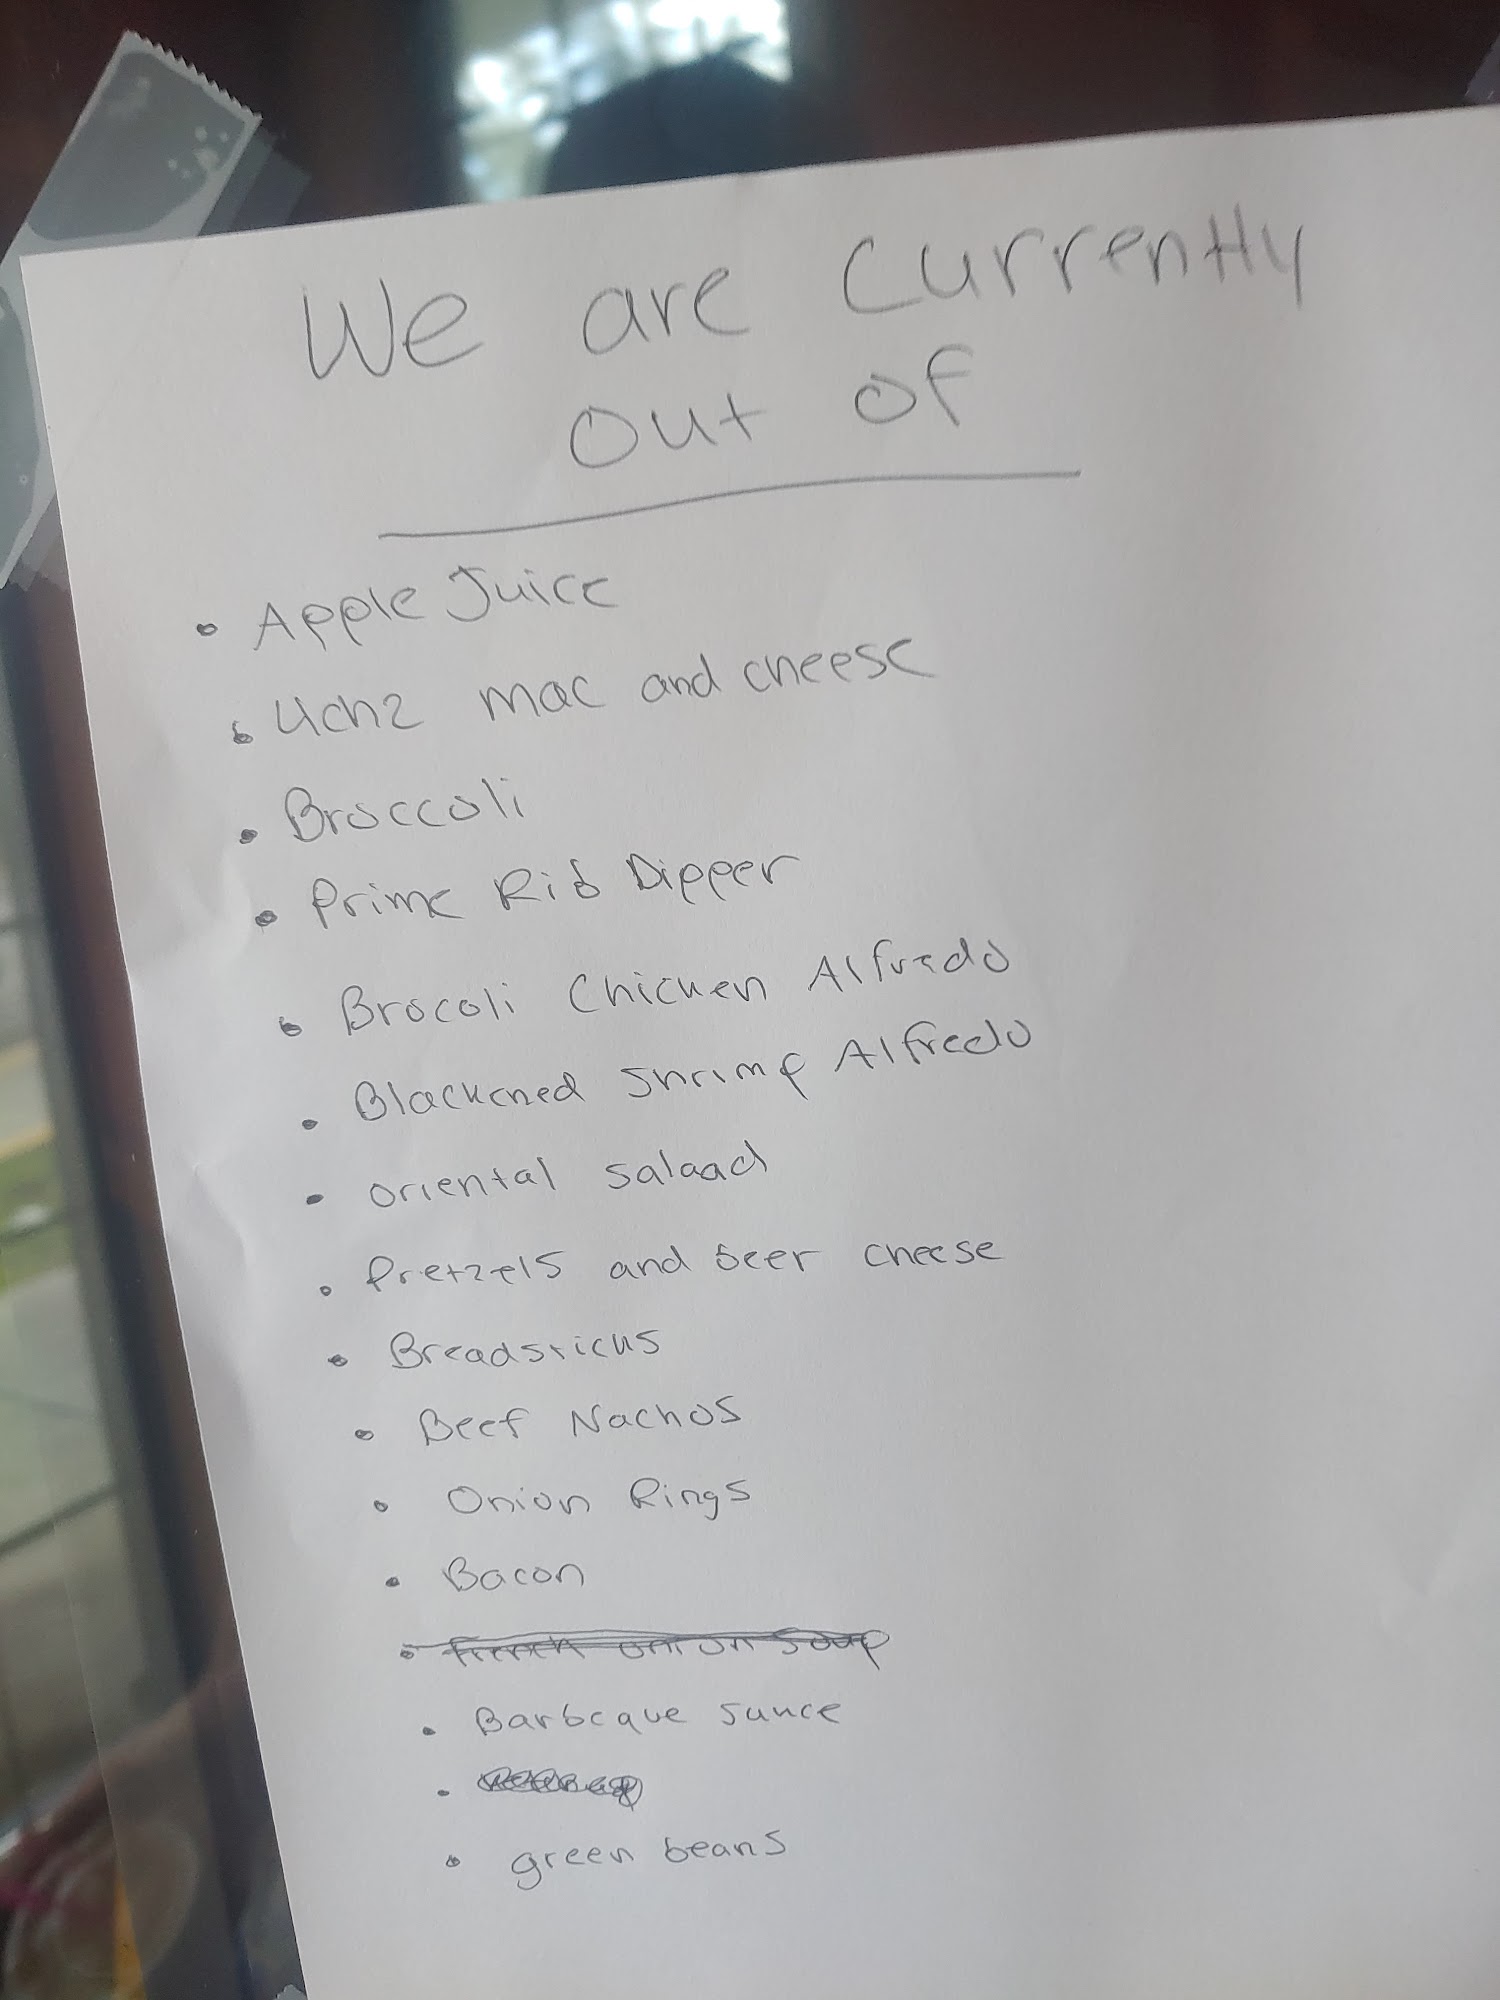 We are currently
out of
• Apple Juice
• 4ch2 mac and cheese
• Broccoli
• Prime Rib Dipper
• Brocoli Chicken Alfredo
• Blackened Shrimp Alfredo
• oriental salaad
• Pretzels and beer cheese
• Breadsticks
• Beef Nachos
• Onion Rings
• Bacon
• french onion soup
• Barbeque sauce
•
• green beans